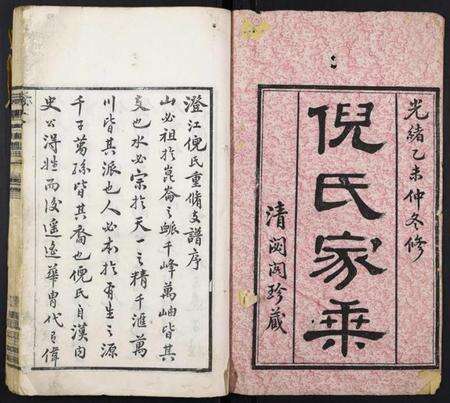 光緒乙未仲冬修
倪氏家乘
清閟閣珍藏
澄江倪氏重脩支譜序
山必祖於崑崙之脈千峰萬岫皆其
支也水必宗於天一之精千滙萬
川皆其派也人必本於有生之源
千子萬孫皆其裔也倪氏自漢內
史公得姓而後遙遙華胄代有偉